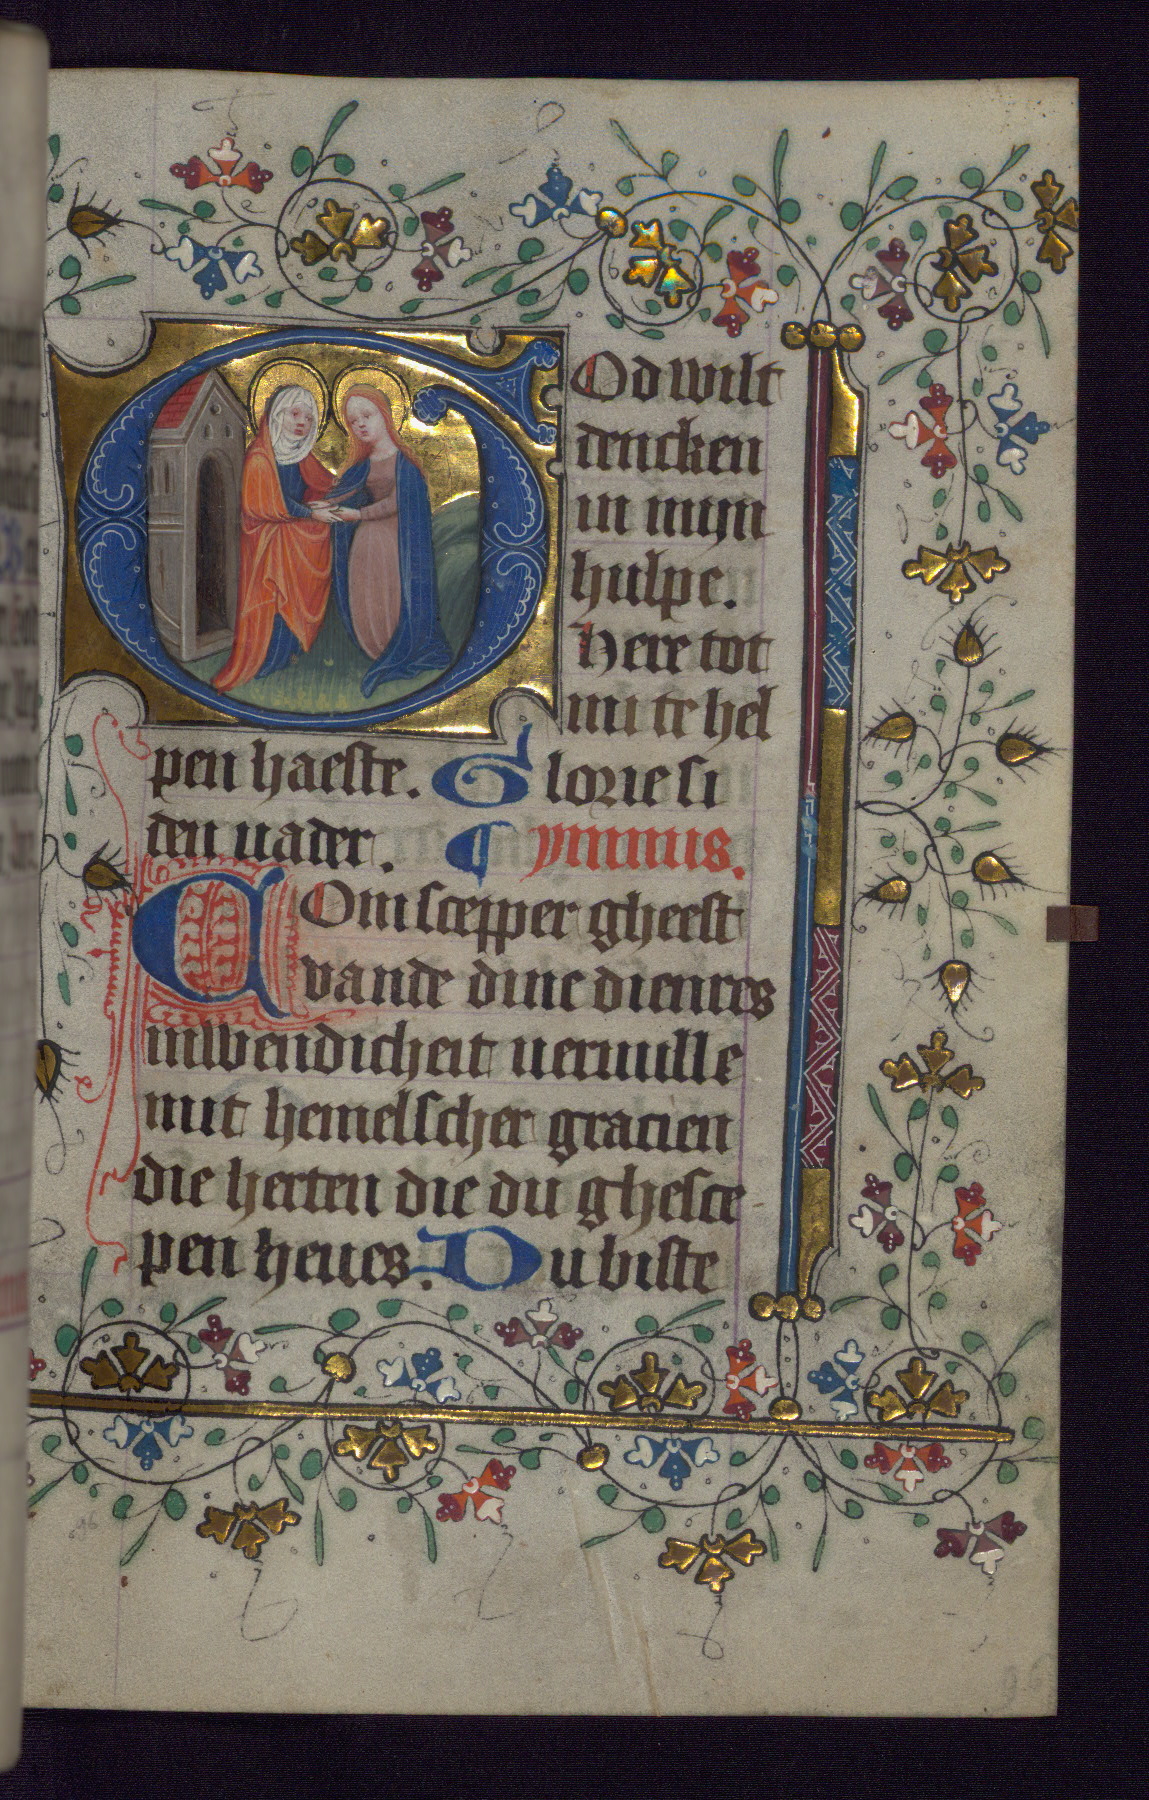 GOd wilt
dencken
in mijn
hulpe.
Here tot
mi te hel
pen haeste. Glorie si
den uader. ymnus.
COm scepper gheest
vande dine dienres
inwendicheit ueruulle
mit hemelscher gracien
die herten die du ghesce
pen heues. Du biste
96
96